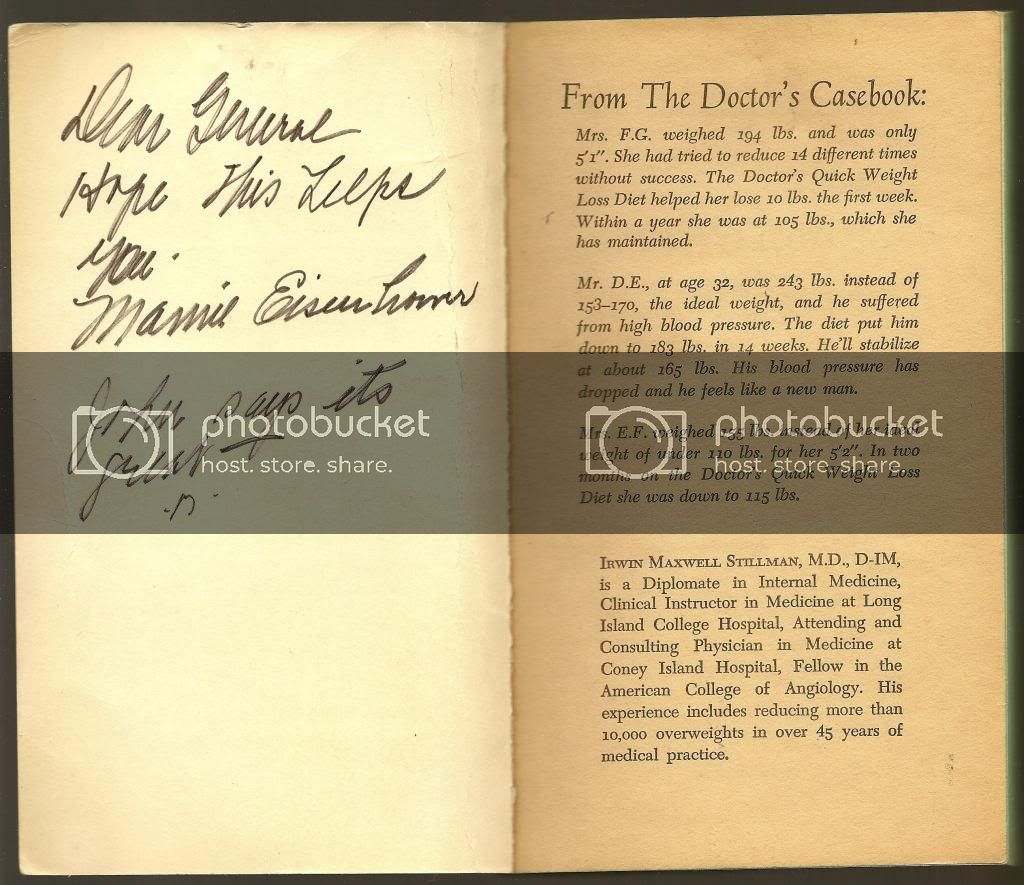 Dear General
Hope This Helps
you.
Mamie Eisenhower
John says its
great
From The Doctor's Casebook:
Mrs. F.G. weighed 194 lbs. and was only
5'1". She had tried to reduce 14 different times
without success. The Doctor's Quick Weight
Loss Diet helped her lose 10 lbs. the first week.
Within a year she was at 105 lbs., which she
has maintained.
Mr. D.E., at age 32, was 243 lbs. instead of
153–170, the ideal weight, and he suffered
from high blood pressure. The diet put him
down to 183 lbs. in 14 weeks. He'll stabilize
at about 165 lbs. His blood pressure has
dropped and he feels like a new man.
Mrs. E.F. weighed lbs. instead of her ideal
weight of under 110 lbs. for her 5'2". In two
months on the Doctor's Quick Weight Loss
Diet she was down to 115 lbs.
Irwin Maxwell Stillman, M.D., D-IM,
is a Diplomate in Internal Medicine,
Clinical Instructor in Medicine at Long
Island College Hospital, Attending and
Consulting Physician in Medicine at
Coney Island Hospital, Fellow in the
American College of Angiology. His
experience includes reducing more than
10,000 overweights in over 45 years of
medical practice.
photobucket
host. store. share.
photobucket
host. store. share.